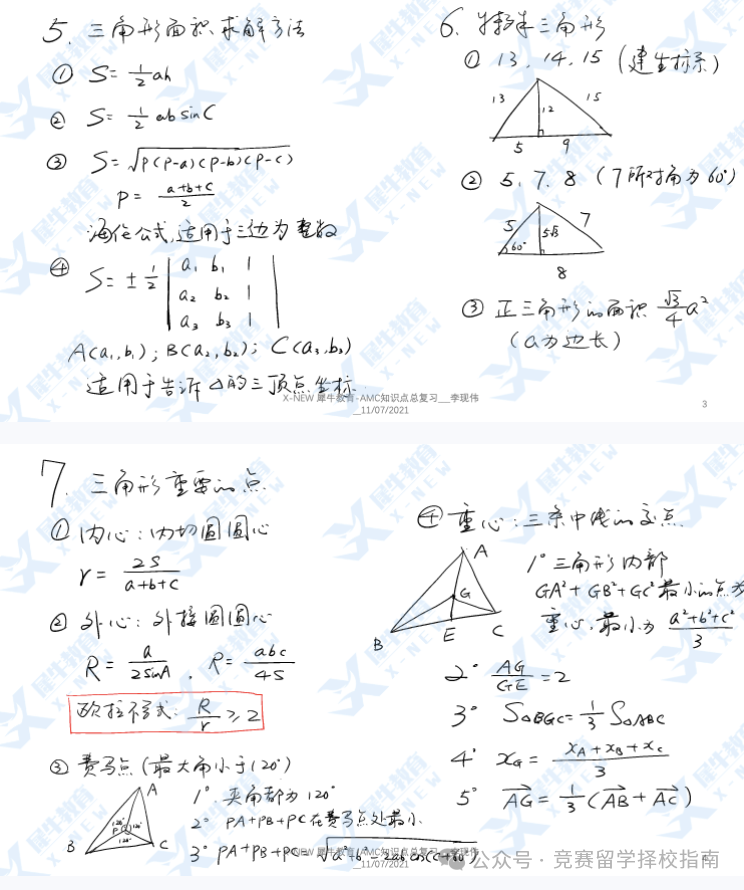 5. 三角形面积求解方法
① S= 1/2 ah
② S= 1/2 ab sinC
③ S=√P(P-a)(P-b)(P-c)
P= a+b+c/2
海伦公式,适用于三边为整数
④ S= ± 1/2 | a₁ b₁ 1 |
a₂ b₂ 1
a₃ b₃ 1
A(a₁,b₁); B(a₂,b₂); C(a₃,b₃)
适用于告诉△的三顶点坐标
6. 特殊三角形
① 13, 14, 15 (建坐标系)
13 12 15
5 9
② 5, 7, 8 (7所对角为60°)
5 5√3 7
60°
8
③ 正三角形的面积 √3/4 a²
(a为边长)
X-NEW 犀牛教育-AMC知识点总复习__李现伟
__11/07/2021
3
7. 三角形重要的点
① 内心:内切圆圆心
r= 2S/a+b+c
② 外心:外接圆圆心
R= a/2sinA , R= abc/4S
欧拉不等式: R/r ≥2
③ 费马点 (最大角小于120°)
A
120° P 120°
120°
B C
1° 夹角都为120°
2° PA+PB+PC在费马点处最小
3° PA+PB+PC=√a²+b²-2ab cos(C+60°)
④ 重心:三条中线的交点
A
G
B E C
1° 三角形内部
GA²+GB²+GC²最小的点为
重心,最小为 a²+b²+c²/3
2° AG/GE =2
3° S△BGC= 1/3 S△ABC
4° x_G = x_A+x_B+x_C/3
5° AG= 1/3 (AB+AC)
X-NEW 犀牛教育-AMC知识点总复习__李现伟
__11/07/2021
公众号·竞赛留学择校指南
犀牛教育
X-NEW